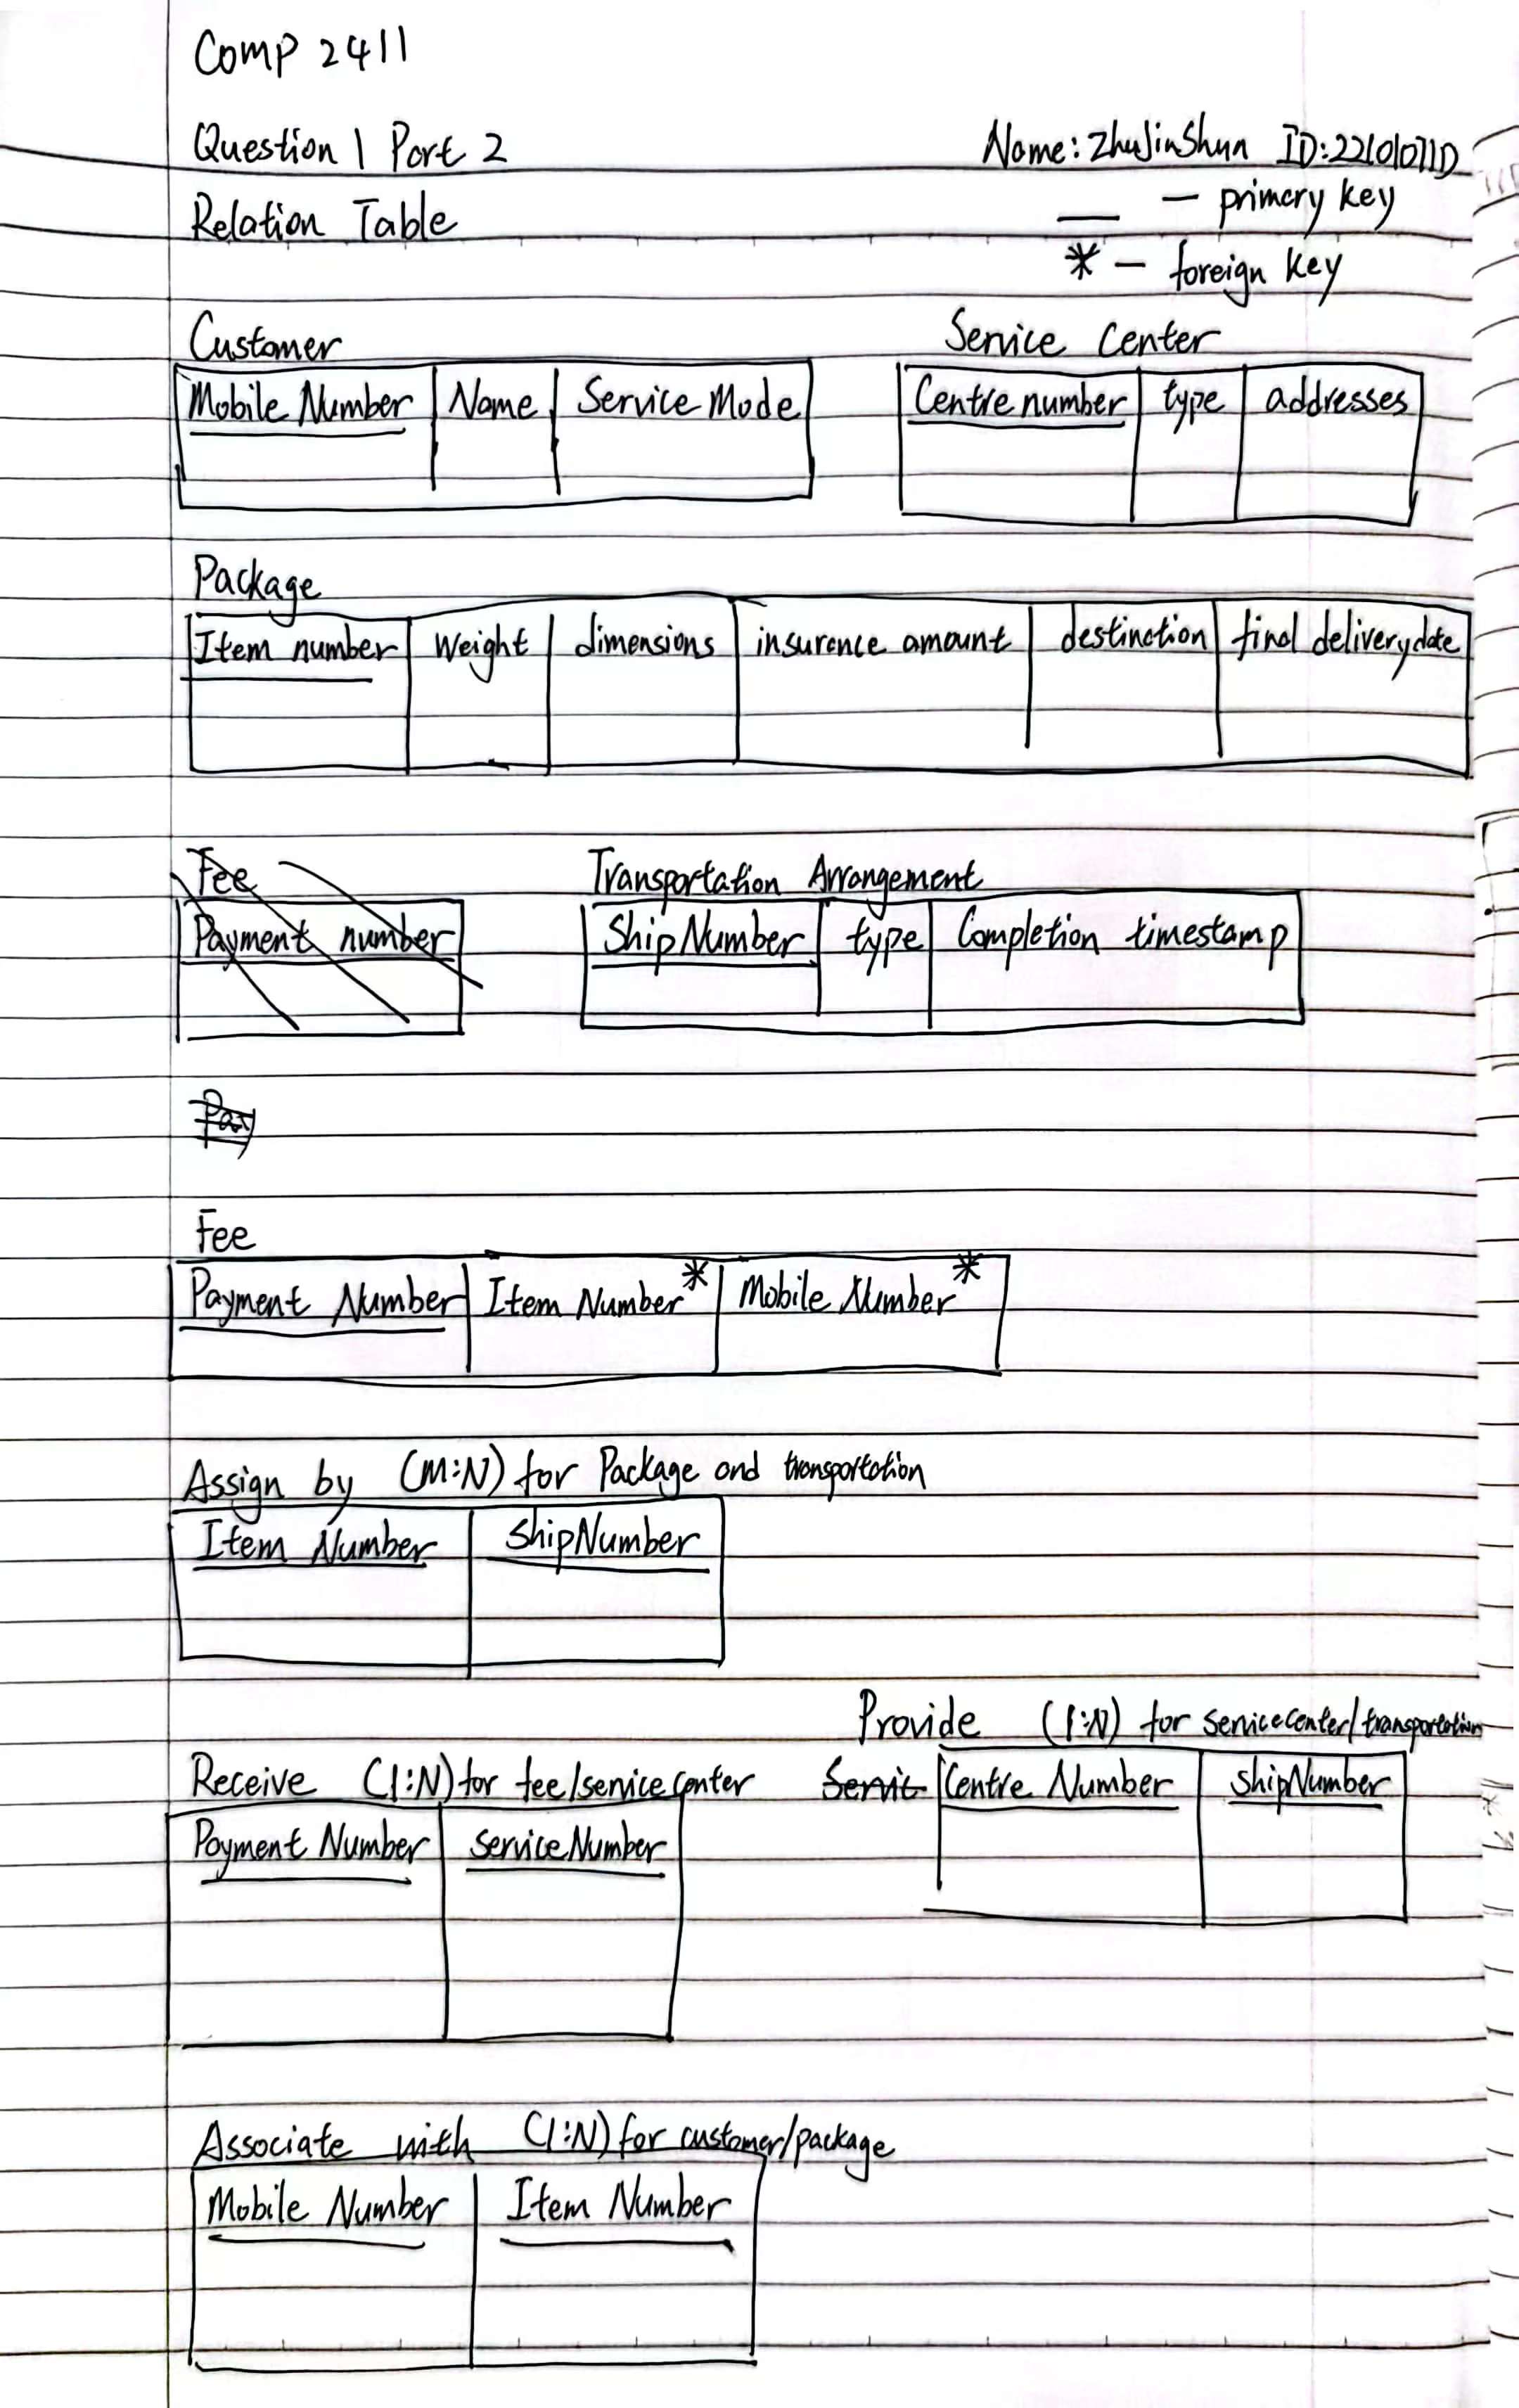 Comp 2411
Question 1 Part 2 Name: ZhuJinShun ID:22101071D
Relation Table — primary key
* — foreign key
Customer Service Center
Mobile Number Name Service Mode Centre number type addresses
Package
Item number Weight dimensions insurance amount destination final delivery date
Fee Transportation Arrangement
Payment number Ship Number type Completion timestamp
Pay
Fee
Payment Number Item Number* Mobile Number*
Assign by (M:N) for Package and transportation
Item Number ShipNumber
Provide (1:N) for servicecenter/transportation
Receive (1:N) for fee/service center Servic Centre Number ShipNumber
Payment Number ServiceNumber
Associate with (1:N) for customer/package
Mobile Number Item Number